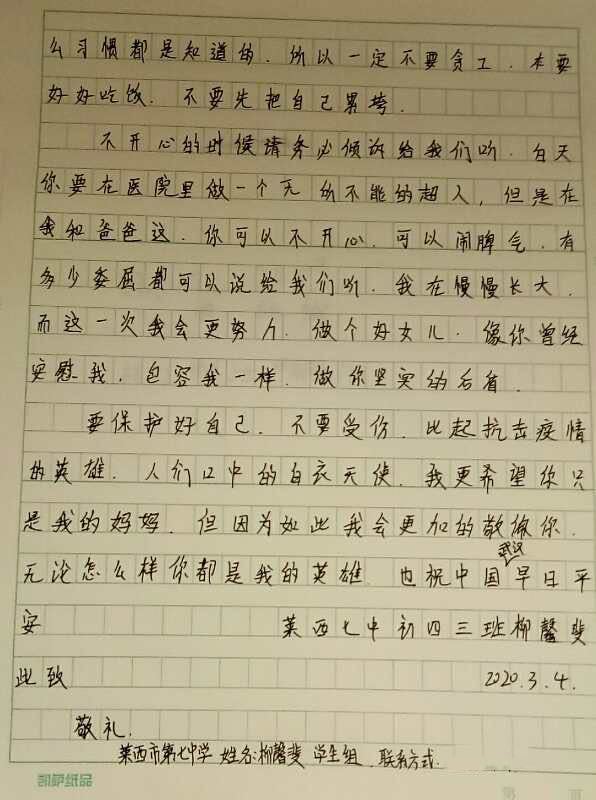 么习惯都是知道的.所以一定不要贪工.本要
好好吃饭.不要先把自己累垮.
不开心的时候请务必倾诉给我们听.白天
你要在医院里做一个无所不能的超人,但是在
我和爸爸这.你可以不开心.可以闹脾气.有
多少委屈都可以说给我们听.我在慢慢长大.
而这一次我会更努力.做个好女儿.像你曾经
安慰我.包容我一样.做你坚实的后盾.
要保护好自己.不要受伤.比起抗击疫情
的英雄.人们口中的白衣天使.我更希望你只
是我的妈妈.但因为如此我会更加的敬佩你.
武汉
无论怎么样你都是我的英雄.也祝中国早日平
安 莱西七中初四三班柳馨斐
此致 2020.3.4.
敬礼.
莱西市第七中学 姓名:柳馨斐 学生组.联系方式.
凯萨纸品
第 页